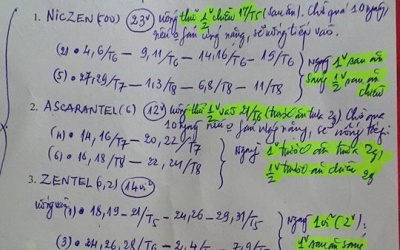 1. NICZEN(500) 23v uống thử 1/2v chiều 17/T5 (sau ăn). Chờ quá 10 ngày
nếu o fản ứng nặng, sẽ uống tiếp vào.
(2) • 4,6/T6 – 9,11/T6 – 14,16/T6 – 19/T6
(5) • 27,29/T7 – 1,3/T8 – 6,8/T8 – 11/T8
1v sau ăn sáng 1/2v sau ăn chiều
2. ASCARANTEL(6) 12v uống thử 1/2v vào 21/T6 (trước ăn trưa 2g) Chờ qua
10 ngày nếu o fản ứng nặng, sẽ uống tiếp:
(4) • 14,16/T7 – 20,22/T7
(6) • 16,18/T8 – 22,24/T8
Ngày 1v trước ăn trưa 2g, 1/2v trước ăn chiều 2g
3. ZENTEL(6,2) 14vi
uống vào (1) • 18,19 – 21/T5 – 24,26 – 29,31/T5
(3) • 24,26,28/T6 – 2,4/T7 – 7,9/
Ngày 1vi (2v):
1v sau ăn sáng